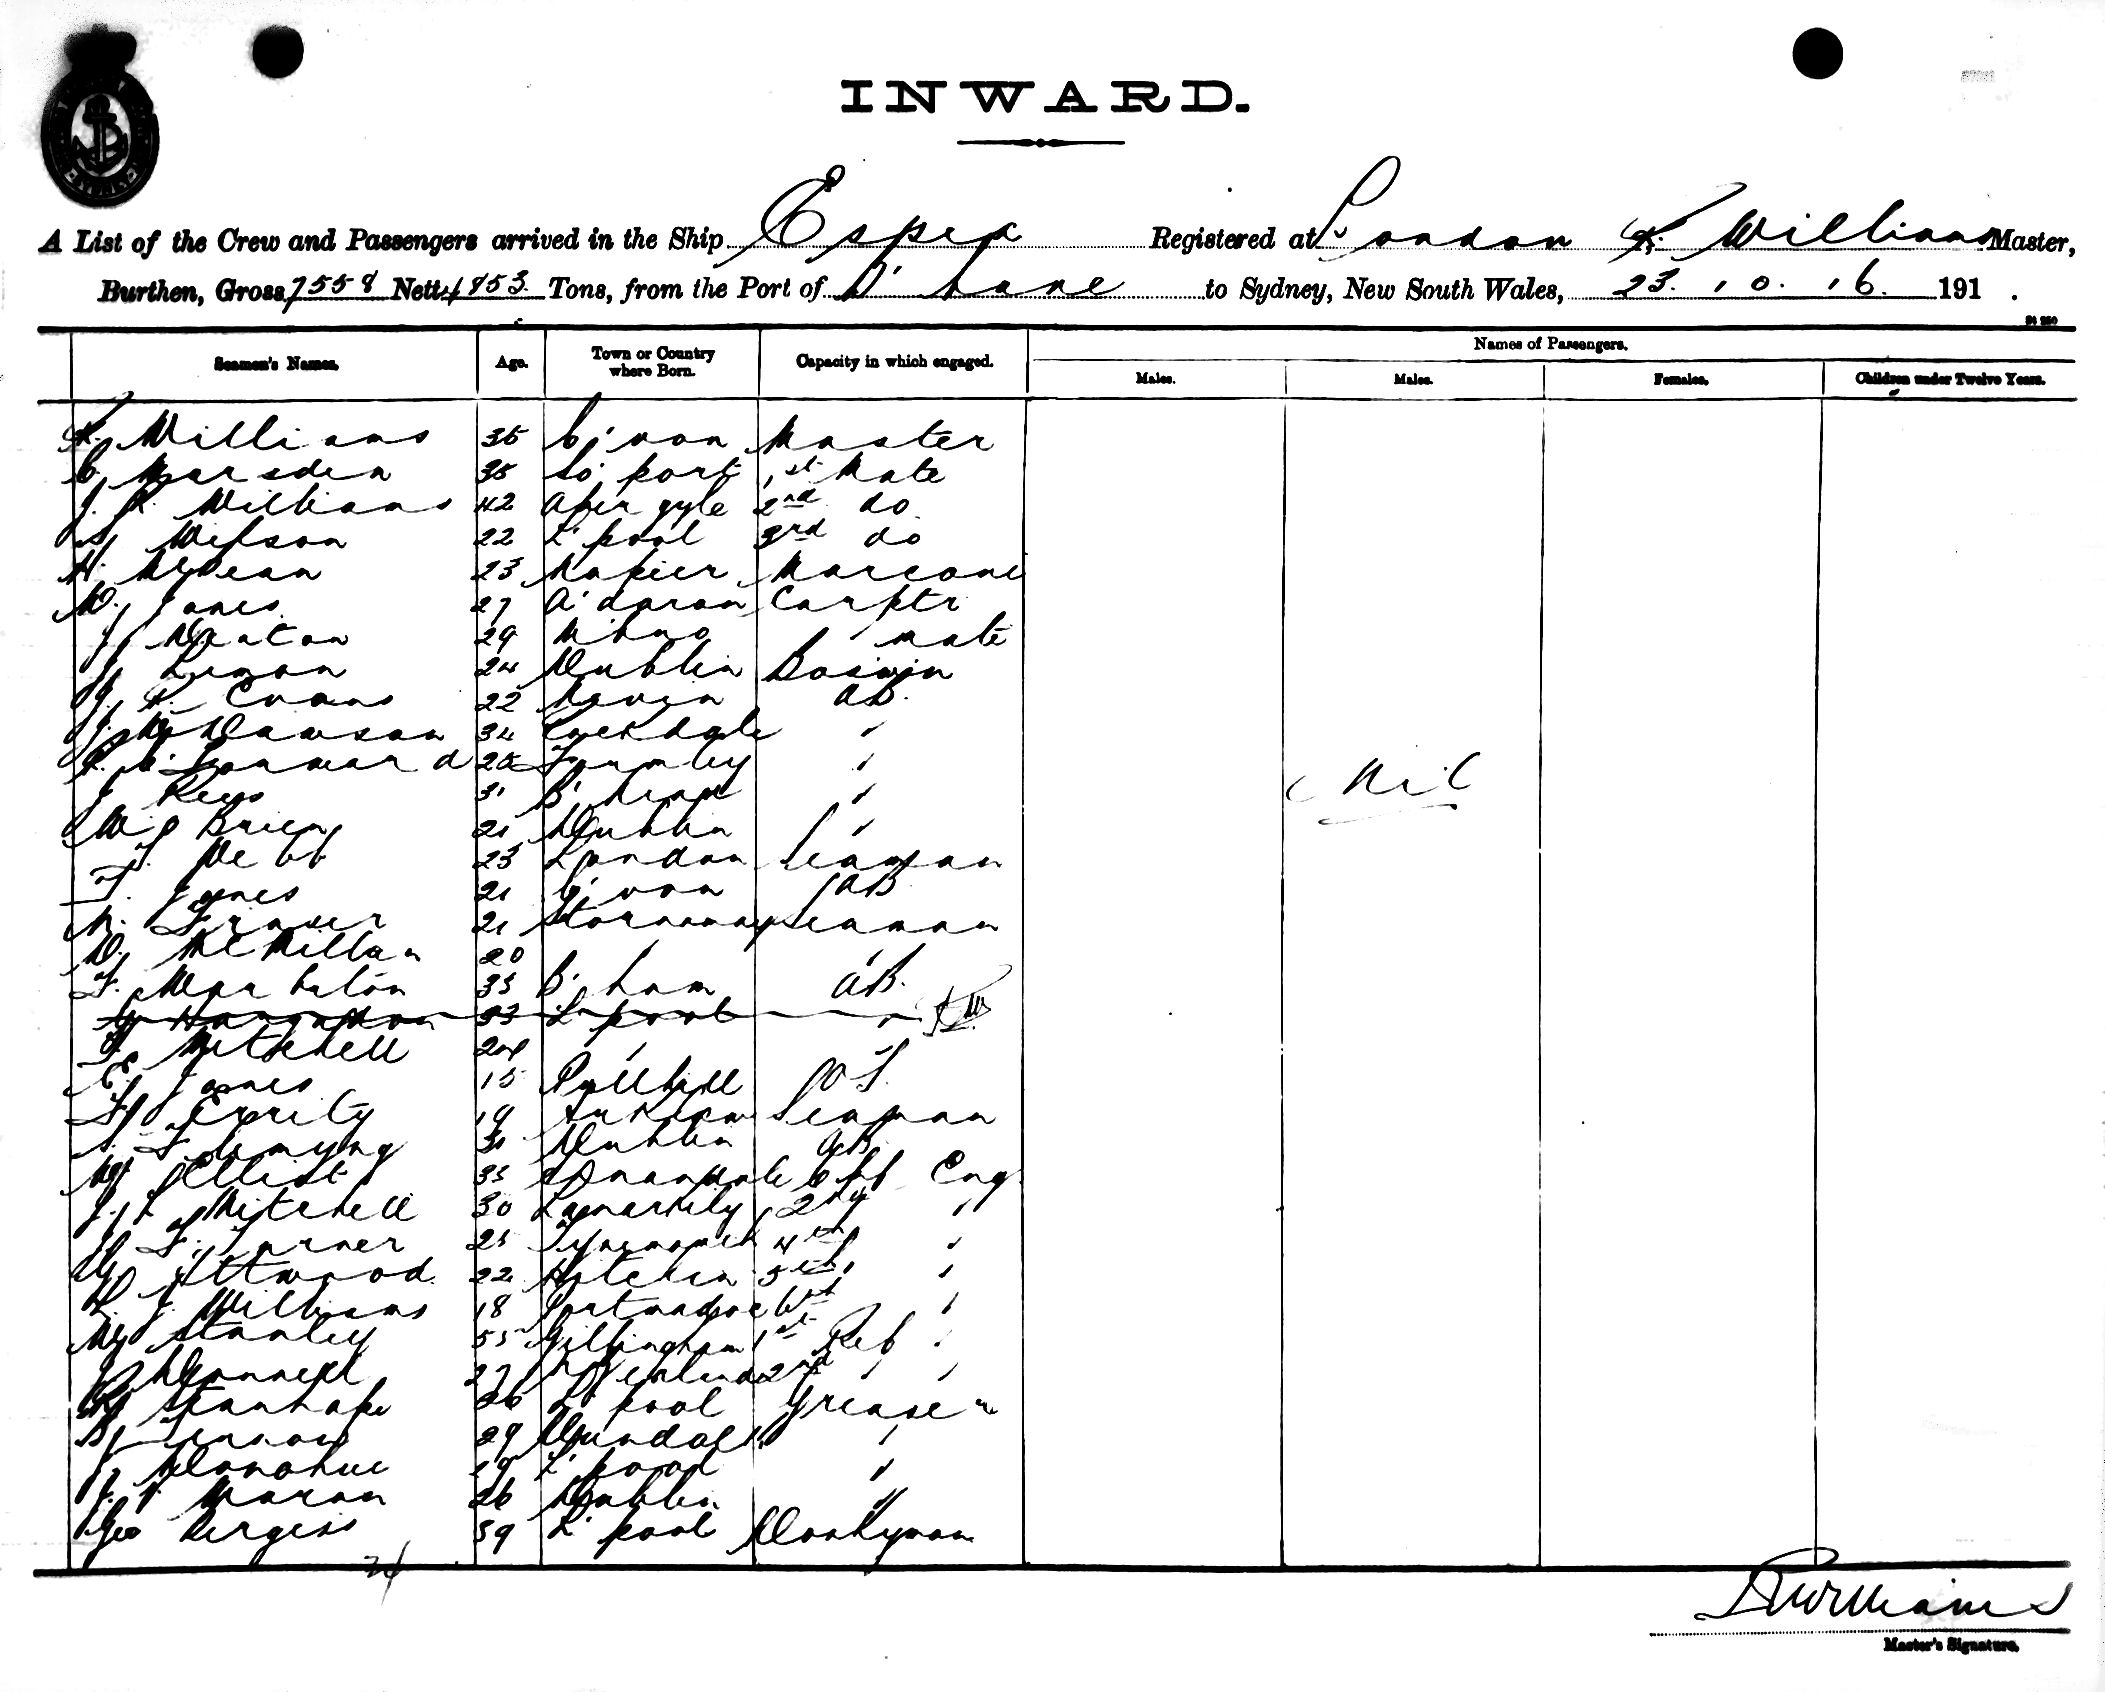 INWARD.
A List of the Crew and Passengers arrived in the Ship Registered at London Williams Master,
Burthen, Gross 7558 Nett 4853. Tons, from the Port of to Sydney, New South Wales, 23.10.16. 191 .
Names of Passengers.
Seamen's Names. Age. Town or Country where Born. Capacity in which engaged. Males. Males. Females. Children under Twelve Years.
Williams 35 C'von Master
C. Marsden 35 So'port 1st Mate
J. Williams 42 Abergyle 2nd do
22 L'pool 3rd do
H. McBean 23 Napier Marconi
W. Jones 27 A'daron Carptr
29 mate
24 Dublin Bos'n
Evans 22 Nevin AB.
Dawson 34 "
25 Formby "
J Rees 31 "
W. O Brien 21 Dublin "
F. Webb 23 London Seaman
Jones 21 C'von AB
M. Fraser 21 Stornoway Seaman
D. McMillan 20 "
F. 33 B'ham AB.
33 L'pool "
Mitchell 24 "
E. Jones 15 Pwllheli OS.
19 Seaman
31 Dublin AB.
W Elliot 33 Annandale Chf Eng
J. Mitchell 30 2nd "
F. Turner 25 Tynemouth 4th "
Attwood. 22 5th "
J. Williams 18 Portmadoc 6th "
Wm Stanley 55 Gillingham 1st Ref "
27 2nd " "
Stanhope 26 L'pool Greaser
29 Dundalk "
J. Donohue 19 L'pool "
J. Moran 26 Dublin "
Geo Burgess 39 L'pool Donkyman
Nil
Williams
Master's Signature.